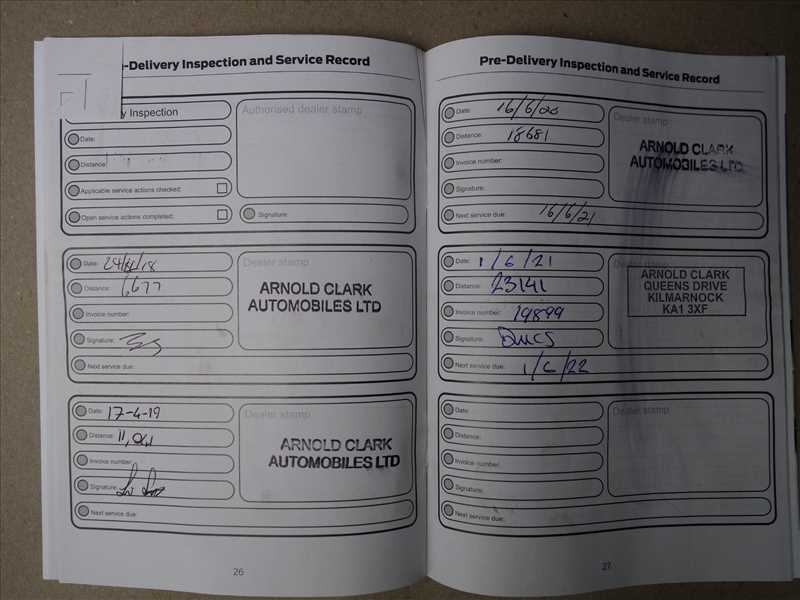 -Delivery Inspection and Service Record
y Inspection
Date:
Distance:
Applicable service actions checked:
Open service actions completed:
Authorised dealer stamp
Signature:
Date:
Distance: 6677
Invoice number:
Signature:
Next service due:
Dealer stamp
ARNOLD CLARK
AUTOMOBILES LTD
Date: 17-4-19
Distance:
Invoice number:
Signature:
Next service due:
Dealer stamp
ARNOLD CLARK
AUTOMOBILES LTD
26
Pre-Delivery Inspection and Service Record
Date: 16/6/20
Distance: 18681
Invoice number:
Signature:
Next service due: 16/6/21
Dealer stamp
ARNOLD CLARK
AUTOMOBILES LTD
Date: 1/6/21
Distance: 23141
Invoice number: 19899
Signature:
Next service due: 1/6/22
Dealer stamp
ARNOLD CLARK
QUEENS DRIVE
KILMARNOCK
KA1 3XF
Date:
Distance:
Invoice number:
Signature:
Next service due:
Dealer stamp
27